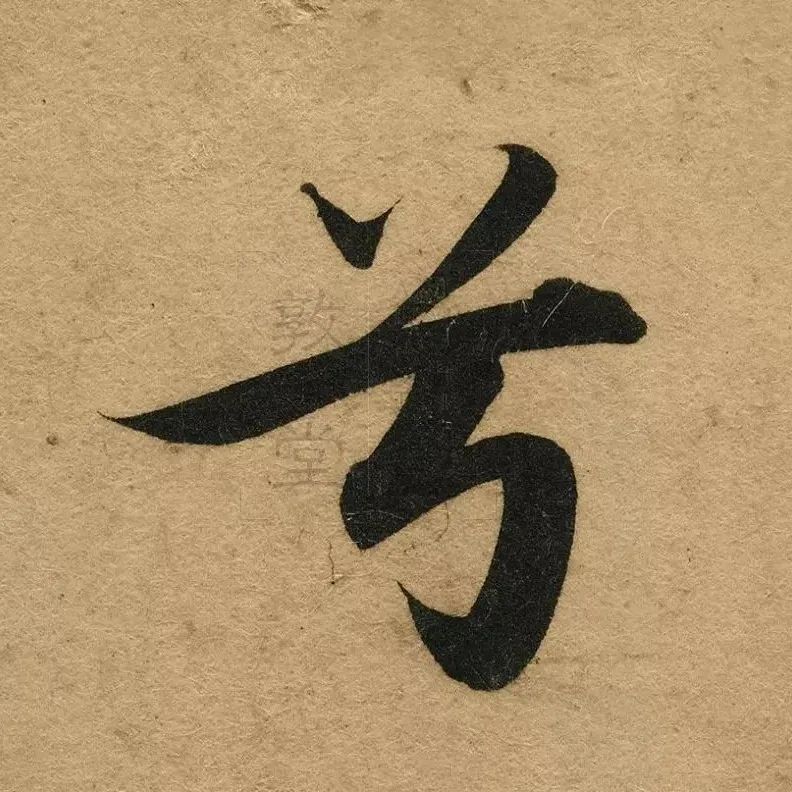 兮
敦堂